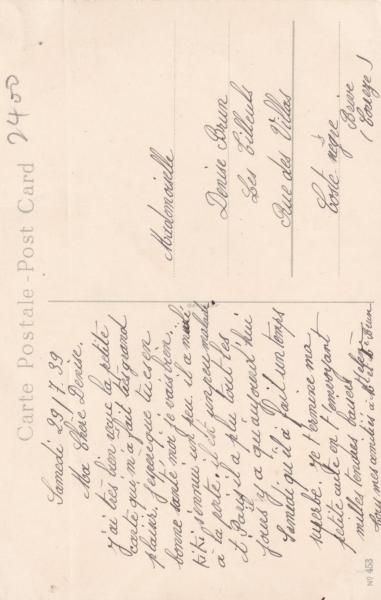 Carte Postale - Post Card
2400
Samedi 29/7.39
Ma Chère Denise.
J'ai très bien reçue la petite
carte qui m'a fait très grand
plaisir, j'espère que tu es en
bonne santé moi je vais bien,
Kiki s'ennui un peu, il a
à la verte, il est un peu malade
et Paris il a plu tout les
jours y a qu'aujourd'hui
Samedi qu'il a fait un temps
superbe. Je termine ma
petite carte en t'envoyant
milles tendres baisers
tous mes amitiés à Mr et Me Brun
Mademoiselle
Denise Brun
Les Tilleuls
Rue des Villas
Coste nègre
Brive
(Corrèze)
No 453